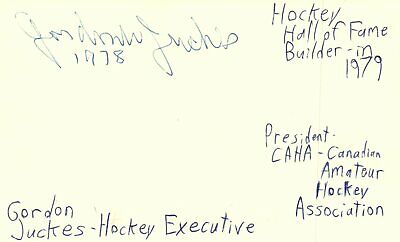 Gordon Juckes
1978
Hockey
Hall of Fame
Builder-in
1979
President-
CAHA-Canadian
Amateur
Hockey
Association
Gordon
Juckes-Hockey Executive